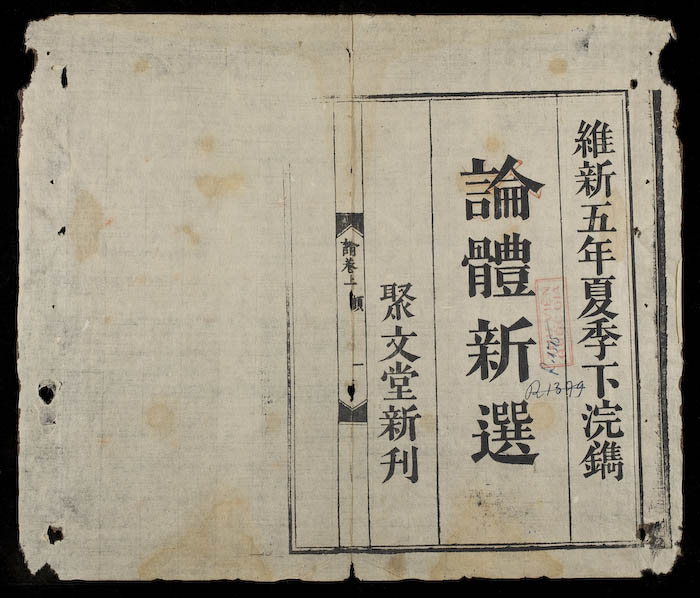 維新五年夏季下浣鐫
論體新選
聚文堂新刊
R.1394
論卷上
一